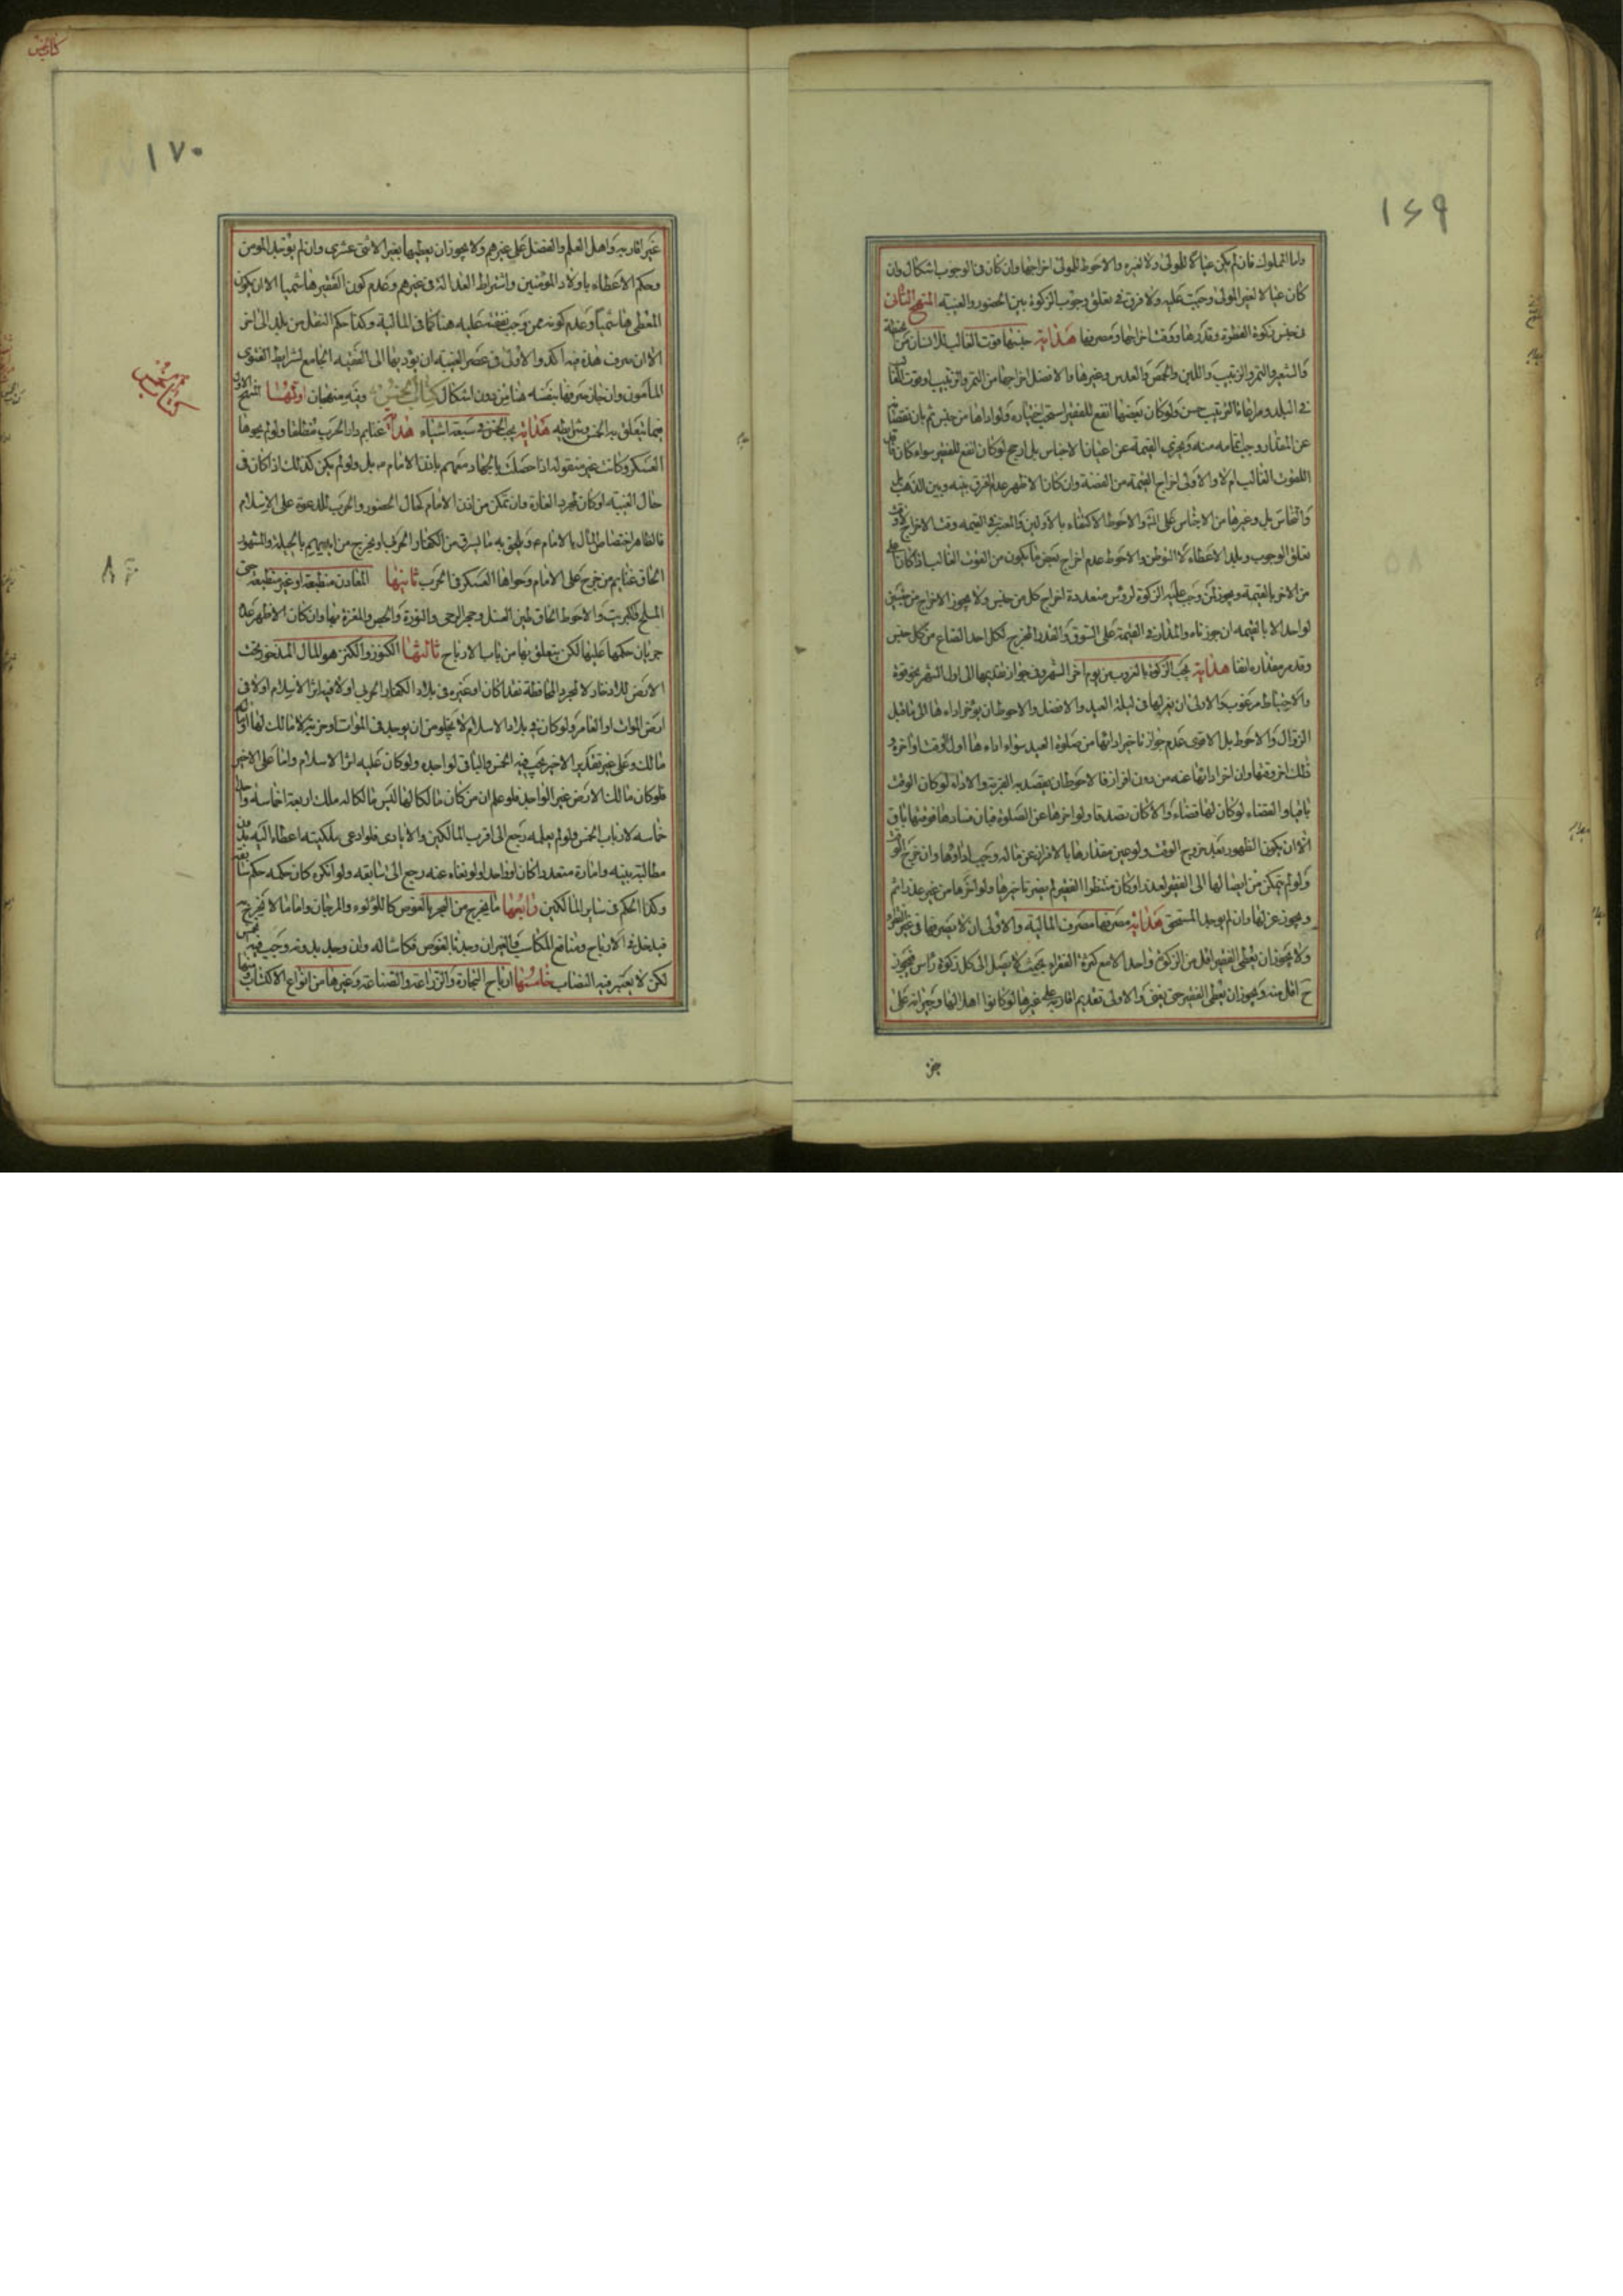 ١٦٩
واما المملوك فان لم يكن عيالا للمولى ولا لغيره والاحوط للمولى اخراجها وان كان في الوجوب اشكال وان
كان عيالا لغير المولى وجبت عليه ولا فرق في تعلق وجوب الزكوة بين الحضور والغيبة المنهج الثاني
في جنس زكوة الفطرة وقدرها ووقت اخراجها ومصرفها هداية جنسها قوت الغالب للانسان من حنطة
والشعير والتمر والزبيب واللبن والحمص والعدس وغيرها والافضل اخراجها من التمر والزبيب او قوت
في البلد ومراعاة الترتيب حسن ولو كان بعضها انفع للفقير استحب اختياره ولو اداها من جنس ثم بان نقصها
عن المقدار وجب اتمامه منه ويجزي القيمة عن اعيان الاجناس بل ارجح لو كان انفع للفقير سواء كان
القوت الغالب ام لا والاولى اخراج القيمة من الفضة وان كان الاظهر عدم الفرق بينه وبين الذهب بل
والنحاس بل وغيرها من الاجناس على انه والاحوط الاكتفاء بالاولين والمعتبر في القيمة وقت الاخراج لا وقت
تعلق الوجوب وبلد الاعطاء لا الوطن والاحوط عدم اخراج بعض ما يكون من القوت الغالب اذا كان
من الاخر بالقيمة ويجوز لمن وجب عليه الزكوة لرؤس متعددة اخراج كل من جنس ولا يجوز الاخراج من جنسين
لواحد الا بالقيمة ان جوزناه والمدار في القيمة على السوق والقدر المخرج لكل احد الصاع من كل جنس
وقد مر مقداره انفا هداية يجب الزكوة بالغروب من يوم اخر الشهر وفي جواز تقديمها الى اول الشهر نحو قوة
والاحتياط مرغوب والاولى ان يعزلها في ليلة العيد والافضل والاحوط ان يؤخر اداءها الى ما قبل
الزوال والاحوط بل الاقوى عدم جواز تاخير ادائها من صلوة العيد سواء اداءها اول الوقت او اخره و
ذلك اخر وقتها وان اخر ادائها عنه من دون افراز فالاحوط ان يقصد به القربة والاداء لو كان الوقت
باقيا والقضاء لو كان لها قضاء والا كان تصدقا ولو اخرها عن الصلوة فبان فسادها فوقتها باق
الا ان يكون الظهور بعد خروج الوقت ولو عين مقدارها بالافراز عن ماله وجب اداؤها وان خرج الوقت
ولو لم يتمكن من ايصالها الى الفقير لعذر او كان منتظرا الفقير لم يضر تاخيرها ولو اخرها من غير عذر اثم
ويجوز عزلها وان لم يوجد المستحق هداية مصرفها مصرف المالية والاولى ان لا يصرفها في غير الفقراء
ولا يجوز ان يعطى الفقير اقل من الزكوة واحد الا مع كثرة الفقراء بحيث لا يصل الى كل زكوة رأس فيجوز
ح اقل منه ويجوز ان يعطى الفقير حتى يغنى والاولى تقديم اقاربه على غيرها لو كانوا اهلا لها وجيرانه على
١٧٠
غير اقاربه واهل العلم والفضل على غيرهم ولا يجوز ان يعطيها بغير الاثنى عشري وان لم يوجد المومن
وحكم الاعطاء باولاد المؤمنين واشتراط العدالة في غيرهم وعدم كون الفقير هاشميا الا ان يكون
المعطي هاشميا وعدم كونه ممن وجب نفقته عليه هنا كما في المالية وكذا حكم النقل من بلد الى اخر
الا ان صرف هذه فيه اكد والاولى في عصر الغيبة ان يؤديها الى الفقيه الجامع لشرايط الفتوى
المامون وان جاز صرفها بنفسه هنا من دون اشكال كتاب الخمس وفيه منهجان اولها المنهج الاول
فيما يتعلق به الخمس وشرايطه هداية يجب الخمس في سبعة اشياء غنايم دار الحرب مطلقا ولو لم يحوها
العسكر وكانت غير منقولة اذا حصلت بالجهاد معهم باذن الامام بل ولو لم يكن كذلك اذا كان في
حال الغيبة لو كان لمجرد الغارة وان تمكن من اذن الامام كحال الحضور والحرب للدعوة على الاسلام
فالظاهر اختصاص المال بالامام ع ويلحق به ما يسرق من الكفار الحربي او يخرج من ايديهم بالحيلة والمشهور
الحاق غنايم من خرج على الامام وحواها العسكر في الحرب ثانيها المعادن منطبعة او غير منطبعة حتى
الملح والكبريت والاحوط الحاق طين الغسل وحجر الرحى والنورة والجص والمغرة بها وان كان الاظهر عدم
جريان حكمها عليها لكن يتعلق بها من باب الارباح ثالثها الكنوز والكنز هو المال المذخور تحت
الارض للادخار لا لمجرد المحافظة نقدا كان او غيره في بلاد الكفار الحربي او لا فيه اثر الاسلام او لا في
ارض الموات او العامر ولو كان في بلاد الاسلام لا يخلو من ان يوجد في الموات او خربة لا مالك لها او لها
مالك وعلى غير تقدير الاخير يجب فيه الخمس والباقي لواجده ولو كان عليه اثر الاسلام واما على الاخير
فلو كان مالك الارض غير الواجد فلو علم ان من كان مالكا لها ليس مالكا له ملك اربعة اخماسه واحد
خماسه لارباب الخمس ولو لم يعلمه رجع الى اقرب المالكين والايادي فلو ادعى ملكيته اعطاه اليه من دون
مطالبة بينة وامارة متعددا كان او واحدا ولو نفاه عنه رجع الى سابقه ولو انكره كان حكمه حكم
وكذا الحكم في ساير المالكين رابعها ما يخرج من البحر بالغوص كاللؤلؤ والمرجان واما ما لا يخرج به
فيدخل في الارباح ومنافع المكاسب والعنبر ان وجد بالغوص فكاساله وان وجد بدونه وجب فيه خمس
لكن لا يعتبر فيه النصاب خامسها ارباح التجارة والزراعة والصناعة وغيرها من انواع الاكتساب ومنها
كتاب الخمس
٨٦